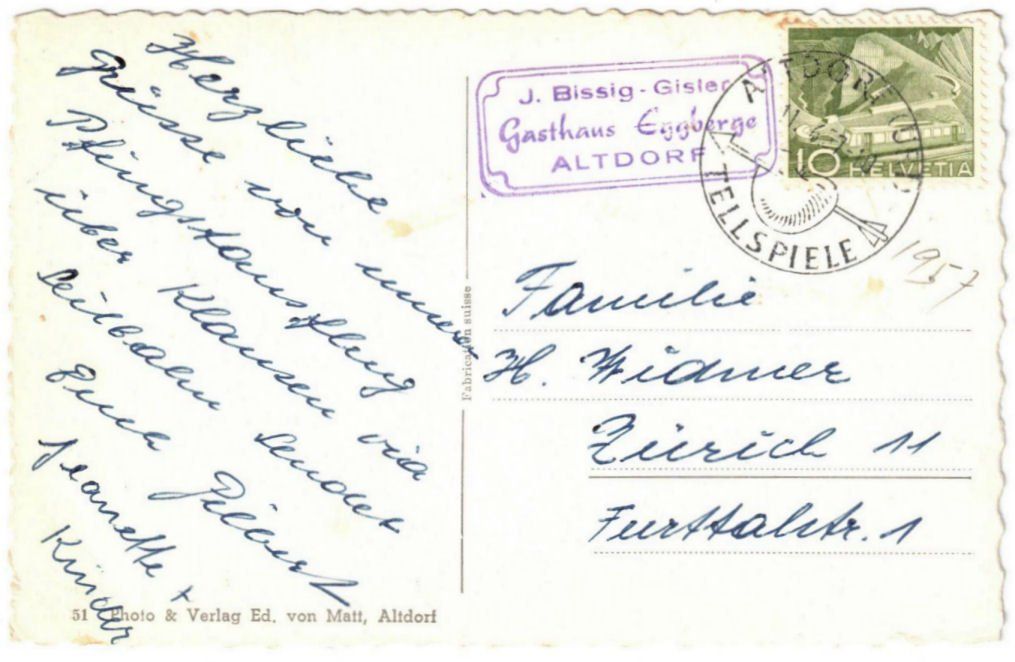 Herzliche
Grüsse von unserer
Pfingstausflug
über Klausen via
Seilbahn sendet
Euch
Jeanette +
Kinder
51 Photo & Verlag Ed. von Matt, Altdorf
Fabrication suisse
J. Bissig-Gisler
Gasthaus Eggberge
ALTDORF
ALTDORF (URI)
TELLSPIELE
10 HELVETIA
1957
Familie
H. Widmer
Zürich 11
Furttalstr. 1